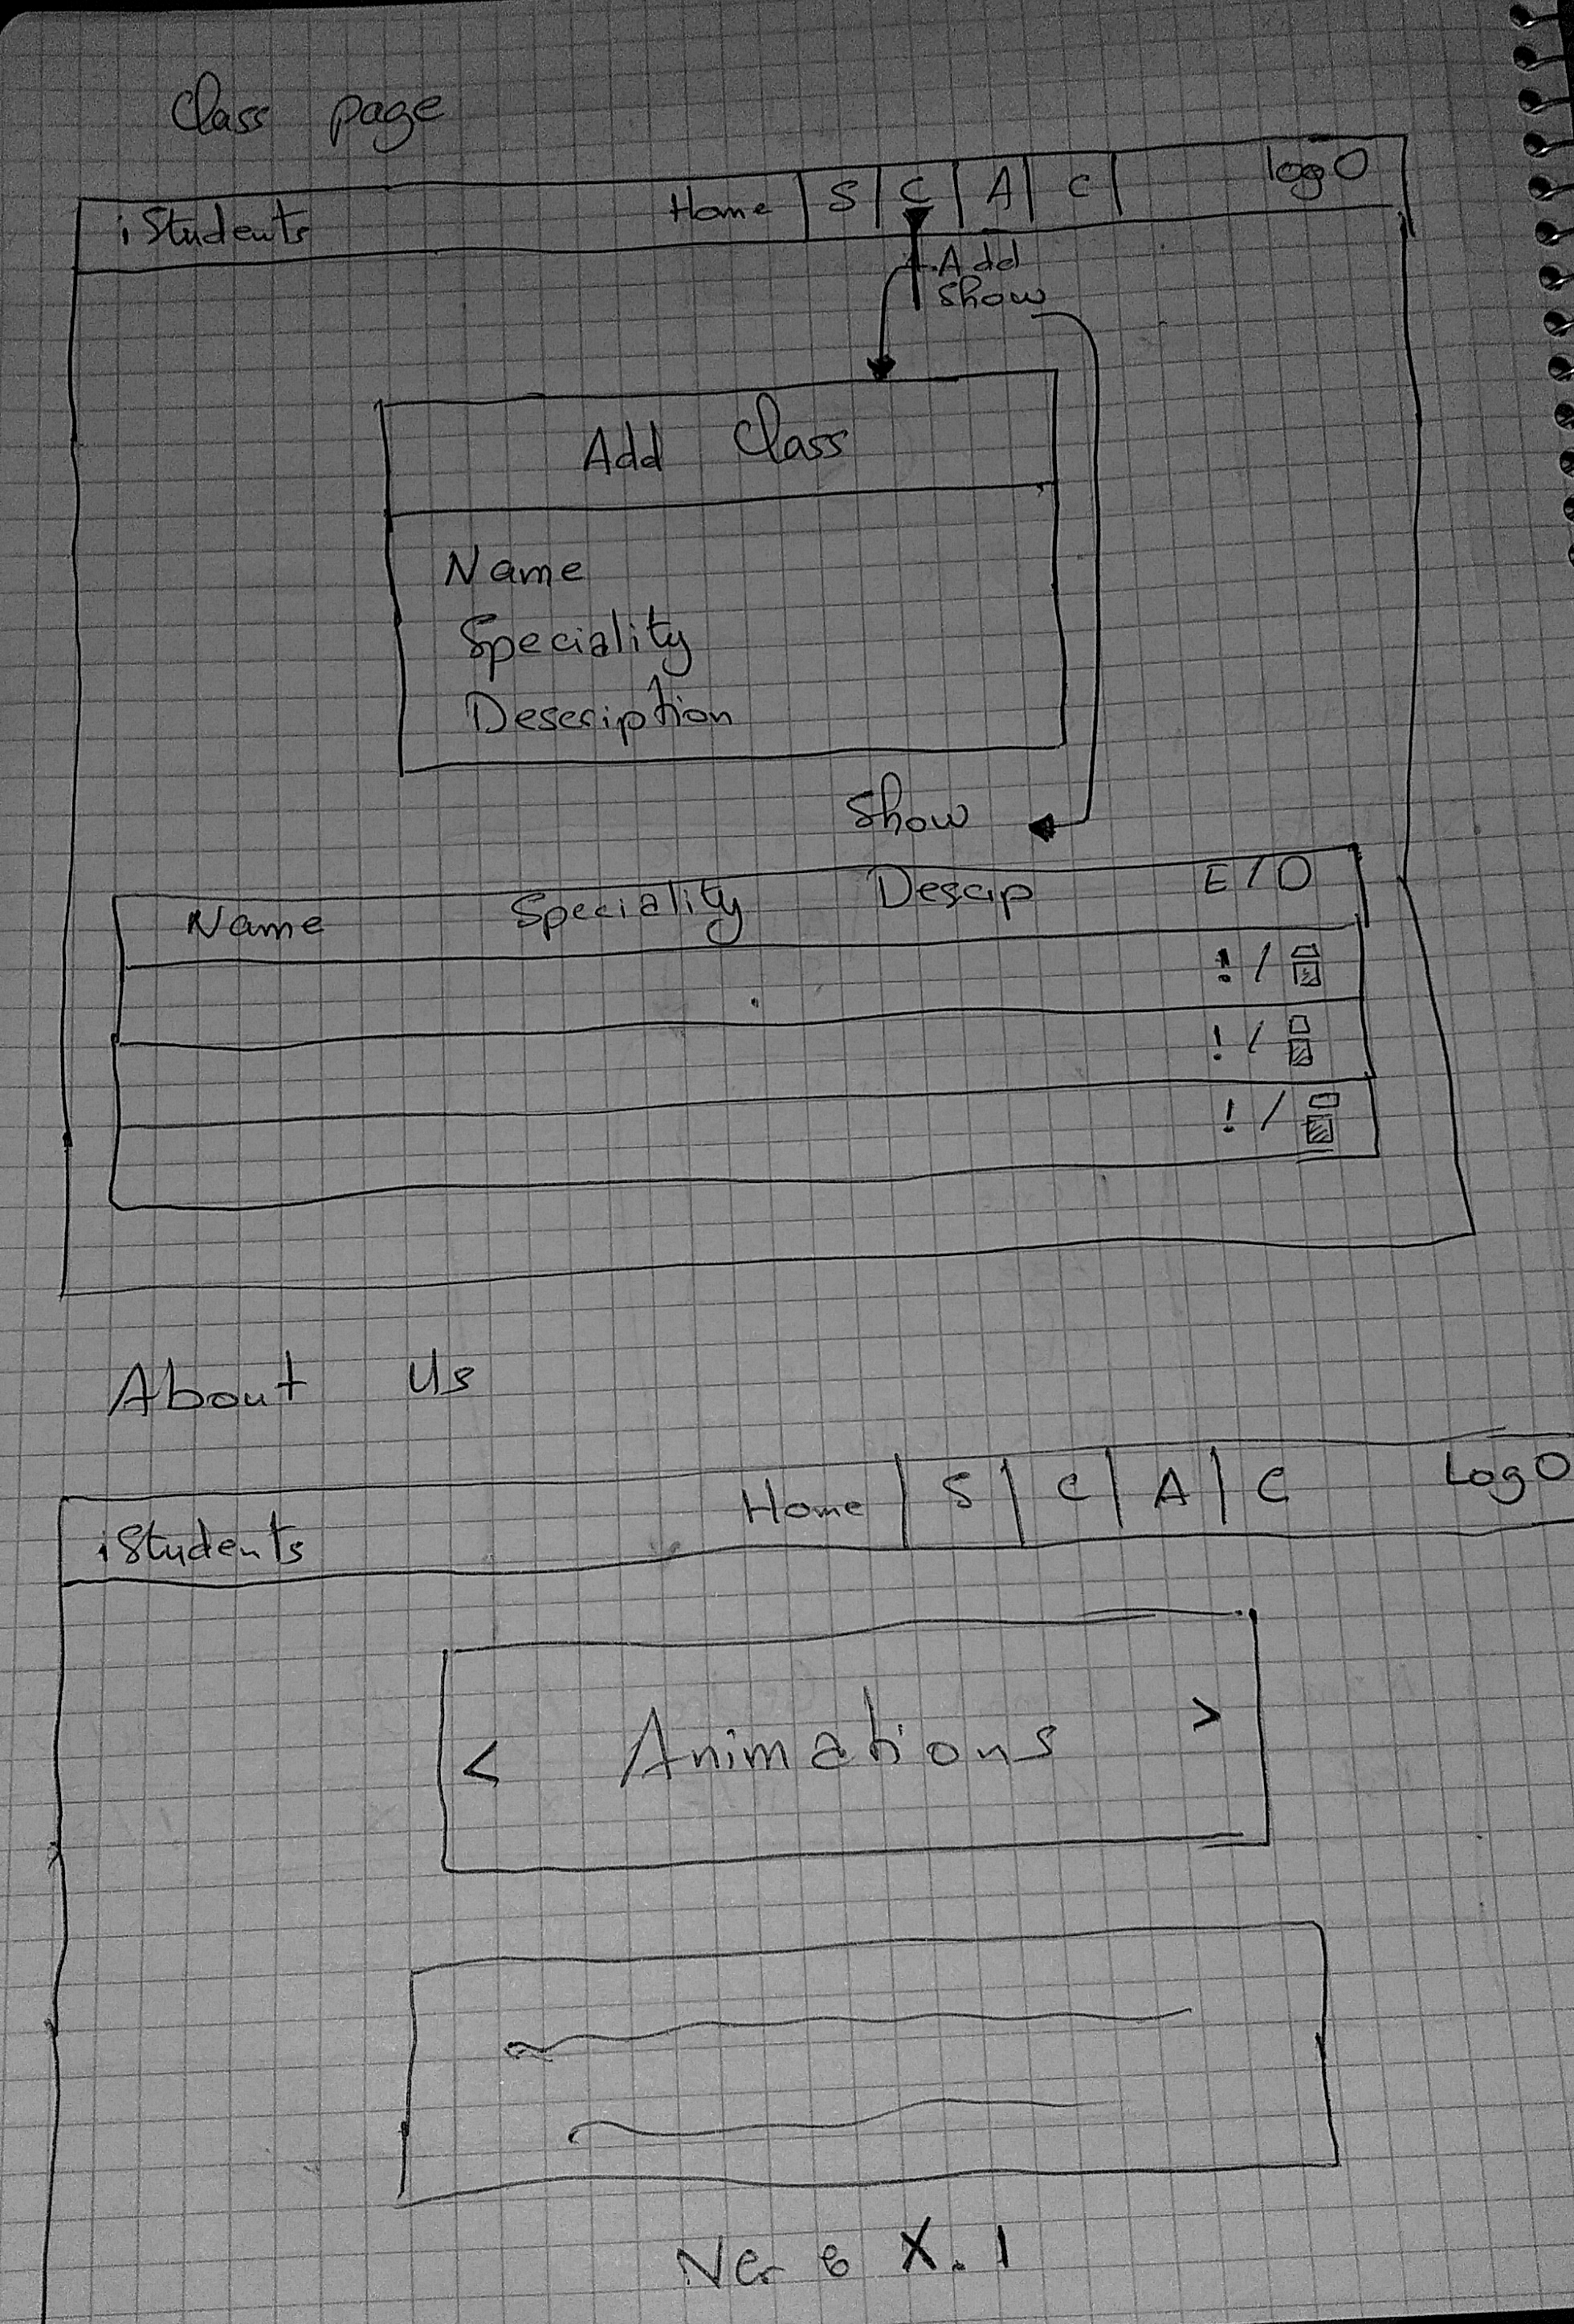 Class page
iStudents Home | S | C | A | C | logO
Add
Show
Add Class
Name
Speciality
Description
Show
Name Speciality Descip E / D
! /
! /
! /
About Us
iStudents Home | S | C | A | C LogO
< Animations >
X.1